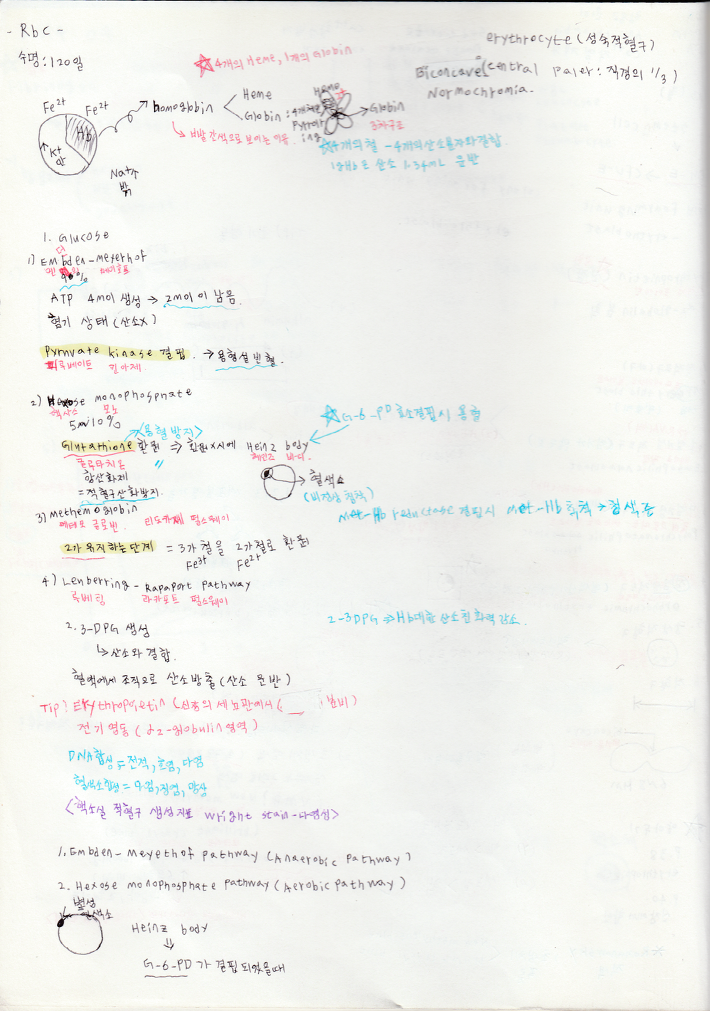 - Rbc -
수명 : 120일
erythrocyte (성숙적혈구)
☆ 4개의 Heme, 1개의 Globin
Biconcave (central paler : 직경의 1/3)
Normochromia.
Fe2+ Fe2+
Hb
K+
Na+
hemoglobin
Heme
Globin : 4개의
Heme
Globin
3차구조
→ 비발간색으로 보이는 이유
☆ 4개의 철 - 4개의 산소분자와 결합
1g Hb는 산소 1.34mL 운반
1. Glucose
1) Embden - meyerhof
90%
ATP 4mol 생성 → 2mol이 남음.
혐기 상태 (산소X)
Pyruvate kinase 결핍. → 용형성빈혈.
피루베이트 키나제
2) Hexose monophosphate
헥사스 모노
5~10%
<용혈방지>
☆ G-6-PD 효소결핍시 용혈
Glutathione 환원 ⇒ 환원X시에 Heinz body
글루타치온
하인즈 바디
항산화제
= 적혈구산화방지.
→ 혈색소
(비정상 침착)
3) methemoglobin
Met-Hb reductase 결핍시 met-Hb 축적 → 청색증
2가 유지하는 단계 = 3가 철을 2가철로 환원
Fe3+ Fe2+
4) Lenberring - Rapaport pathway
루베링 라파포트 펄스웨이
2.3-DPG 생성
2-3DPG ⇒ Hb대한 산소친화력 감소.
↳ 산소와 결합.
혈액에서 조직으로 산소방출 (산소 운반)
Tip! Erythropoietin (신장의 세뇨관에서 ( 분비)
전기영동 (α2-globulin 영역)
DNA합성 = 전적, 호염, 다염
혈색소합성 = 다염, 정염, 망상
<핵소실 적혈구 생성지표 wright stain - 다염성>
1. Embden - Meyethof pathway (Anaerobic pathway)
2. Hexose monophosphate pathway (Aerobic pathway)
변성
혈색소
Heinz body
⇓
G-6-PD가 결핍 되었을때